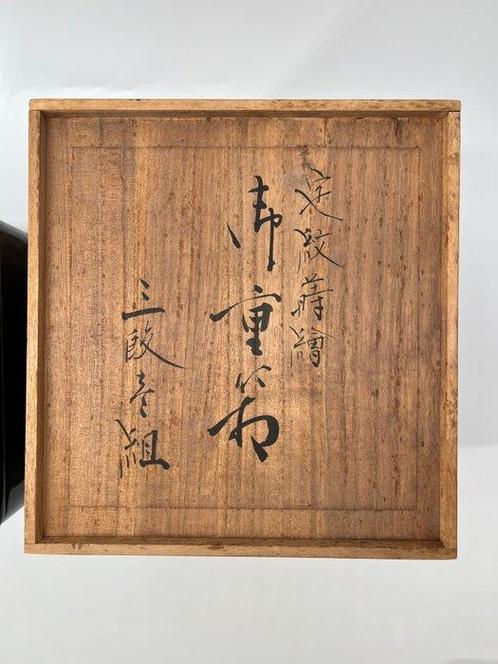 定紋蒔繪
御重箱
三段壱組